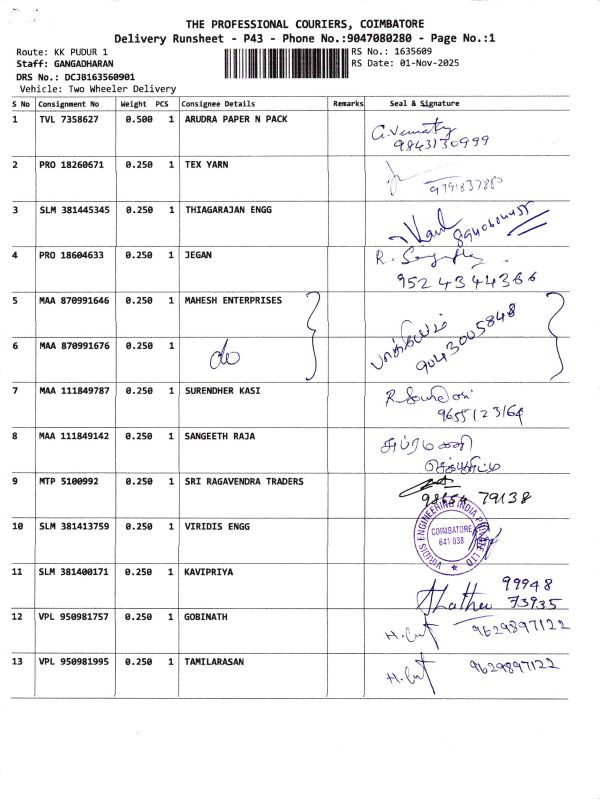 THE PROFESSIONAL COURIERS, COIMBATORE
Delivery Runsheet - P43 - Phone No.:9047080280 - Page No.:1
Route: KK PUDUR 1
Staff: GANGADHARAN
DRS No.: DCJB163560901
Vehicle: Two Wheeler Delivery
RS No.: 1635609
RS Date: 01-Nov-2025
S No Consignment No Weight PCS Consignee Details Remarks Seal & Signature
1 TVL 7358627 0.500 1 ARUDRA PAPER N PACK
9843130999
2 PRO 18260671 0.250 1 TEX YARN
3 SLM 381445345 0.250 1 THIAGARAJAN ENGG
4 PRO 18604633 0.250 1 JEGAN
9524344366
5 MAA 870991646 0.250 1 MAHESH ENTERPRISES
9043005848
6 MAA 870991676 0.250 1 do
7 MAA 111849787 0.250 1 SURENDHER KASI
9655123164
8 MAA 111849142 0.250 1 SANGEETH RAJA
9 MTP 5100992 0.250 1 SRI RAGAVENDRA TRADERS
98654 79138
10 SLM 381413759 0.250 1 VIRIDIS ENGG
VIRIDIS ENGINEERING INDIA PRIVATE LTD
COIMBATORE
641 038
11 SLM 381400171 0.250 1 KAVIPRIYA
99948
73935
12 VPL 950981757 0.250 1 GOBINATH
9629897122
13 VPL 950981995 0.250 1 TAMILARASAN
9629897122